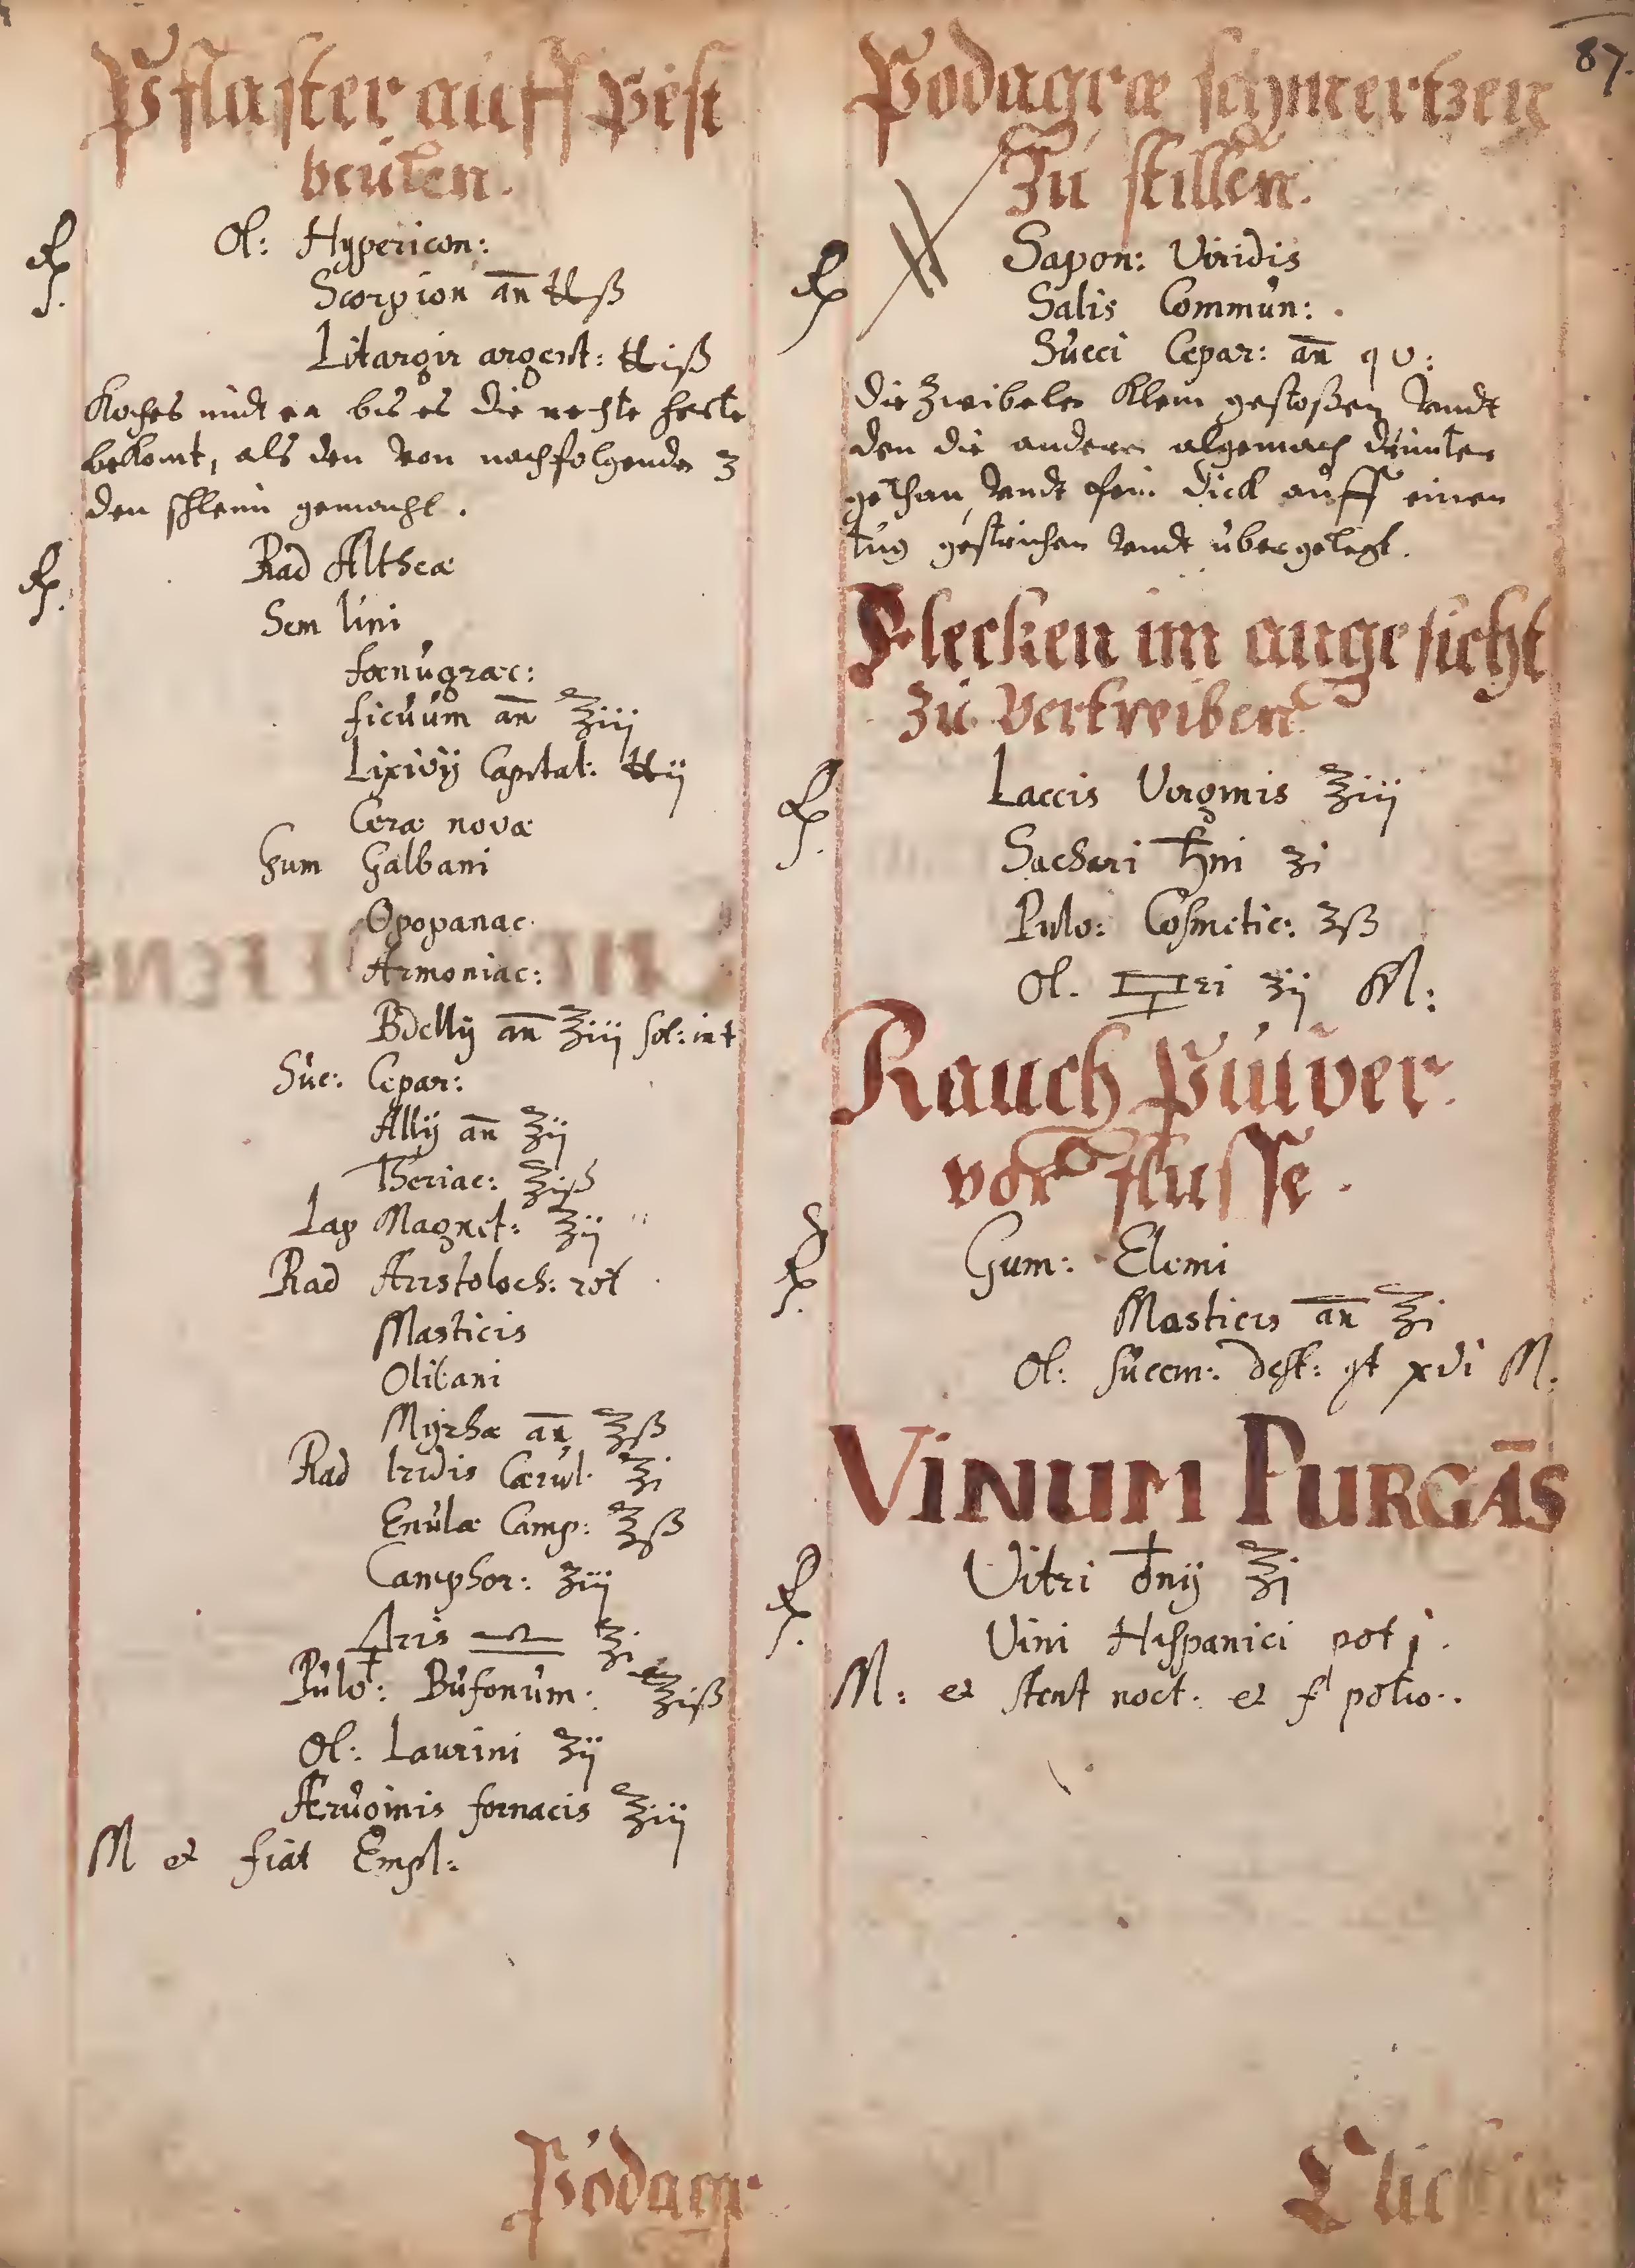 87.
Pflaster auff Pest
beulen.
℞ Ol: Hypericon:
Scorpion an̄ ℔ß
Litargir argent: ℔iß
Koches undt ea bis es die rechte herte
bekomt, als den von nachfolgenden 3
den schleim gemacht.
℞ Rad Altheæ
Sem lini
fœnugræc:
ficuum an̄ ℥iij
Lixivij Capital: ℔ij
Ceræ novæ
Gum Galbani
Opopanac
Armoniac:
Bdellij an̄ ℥iij sol: in
Suc: Cepar:
Allij an̄ ℥ij
Theriac: ℥iß
Lap Magnet: ℥ij
Rad Aristoloch: rot
Masticis
Olibani
Myrhæ an̄ ℥ß
Rad Iridis Cærul: ℥i
Enulæ Camp: ℥ß
Camphor: ʒiij
♎ ℥i
Pulv: Bufonum: ℥iß
Ol: Laurini ʒij
Æruginis fornacis ℥iij
M et fiat Empl:
Podagr
Podagræ schmertzen
Zu stillen.
℞ Sapon: Viridis
Salis Commun:
Succi Cepar: an̄ q v:
die Zwibelen klein gestoßen vndt
den die anderen algemach drunter
gethan, vndt fein dick auff einen
tug gestrichen vndt übergelegt.
Flecken im angesicht
Zu Vertreiben
℞ Laccis Virginis ℥iij
Sachari ♄ni ʒi
Pulv: Cosmetic: ʒß
Ol. ri ʒij M:
Rauch Pulver
vor flusse.
℞ Gum: Elemi
Masticis an̄ ℥i
Ol: succin: dest: gt xvi M.
VINUM PURGĀS
℞ Vitri ♁nij ℥i
Vini Hispanici pot j.
M: et stent noct: et f potio.